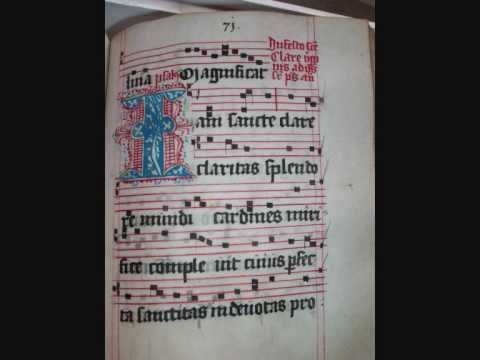 71
In festo sce
Clare virgi
nis ad vs
se ps an
lina psal Magnificat
Iam sancte clare
claritas splendo
re mundi cardines miri
fice comple uit cuius perfec
ta sanctitas in deuotas pro